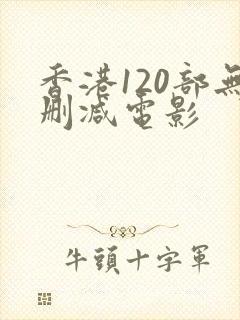 香港120部無
删减電影
牛頭十字軍